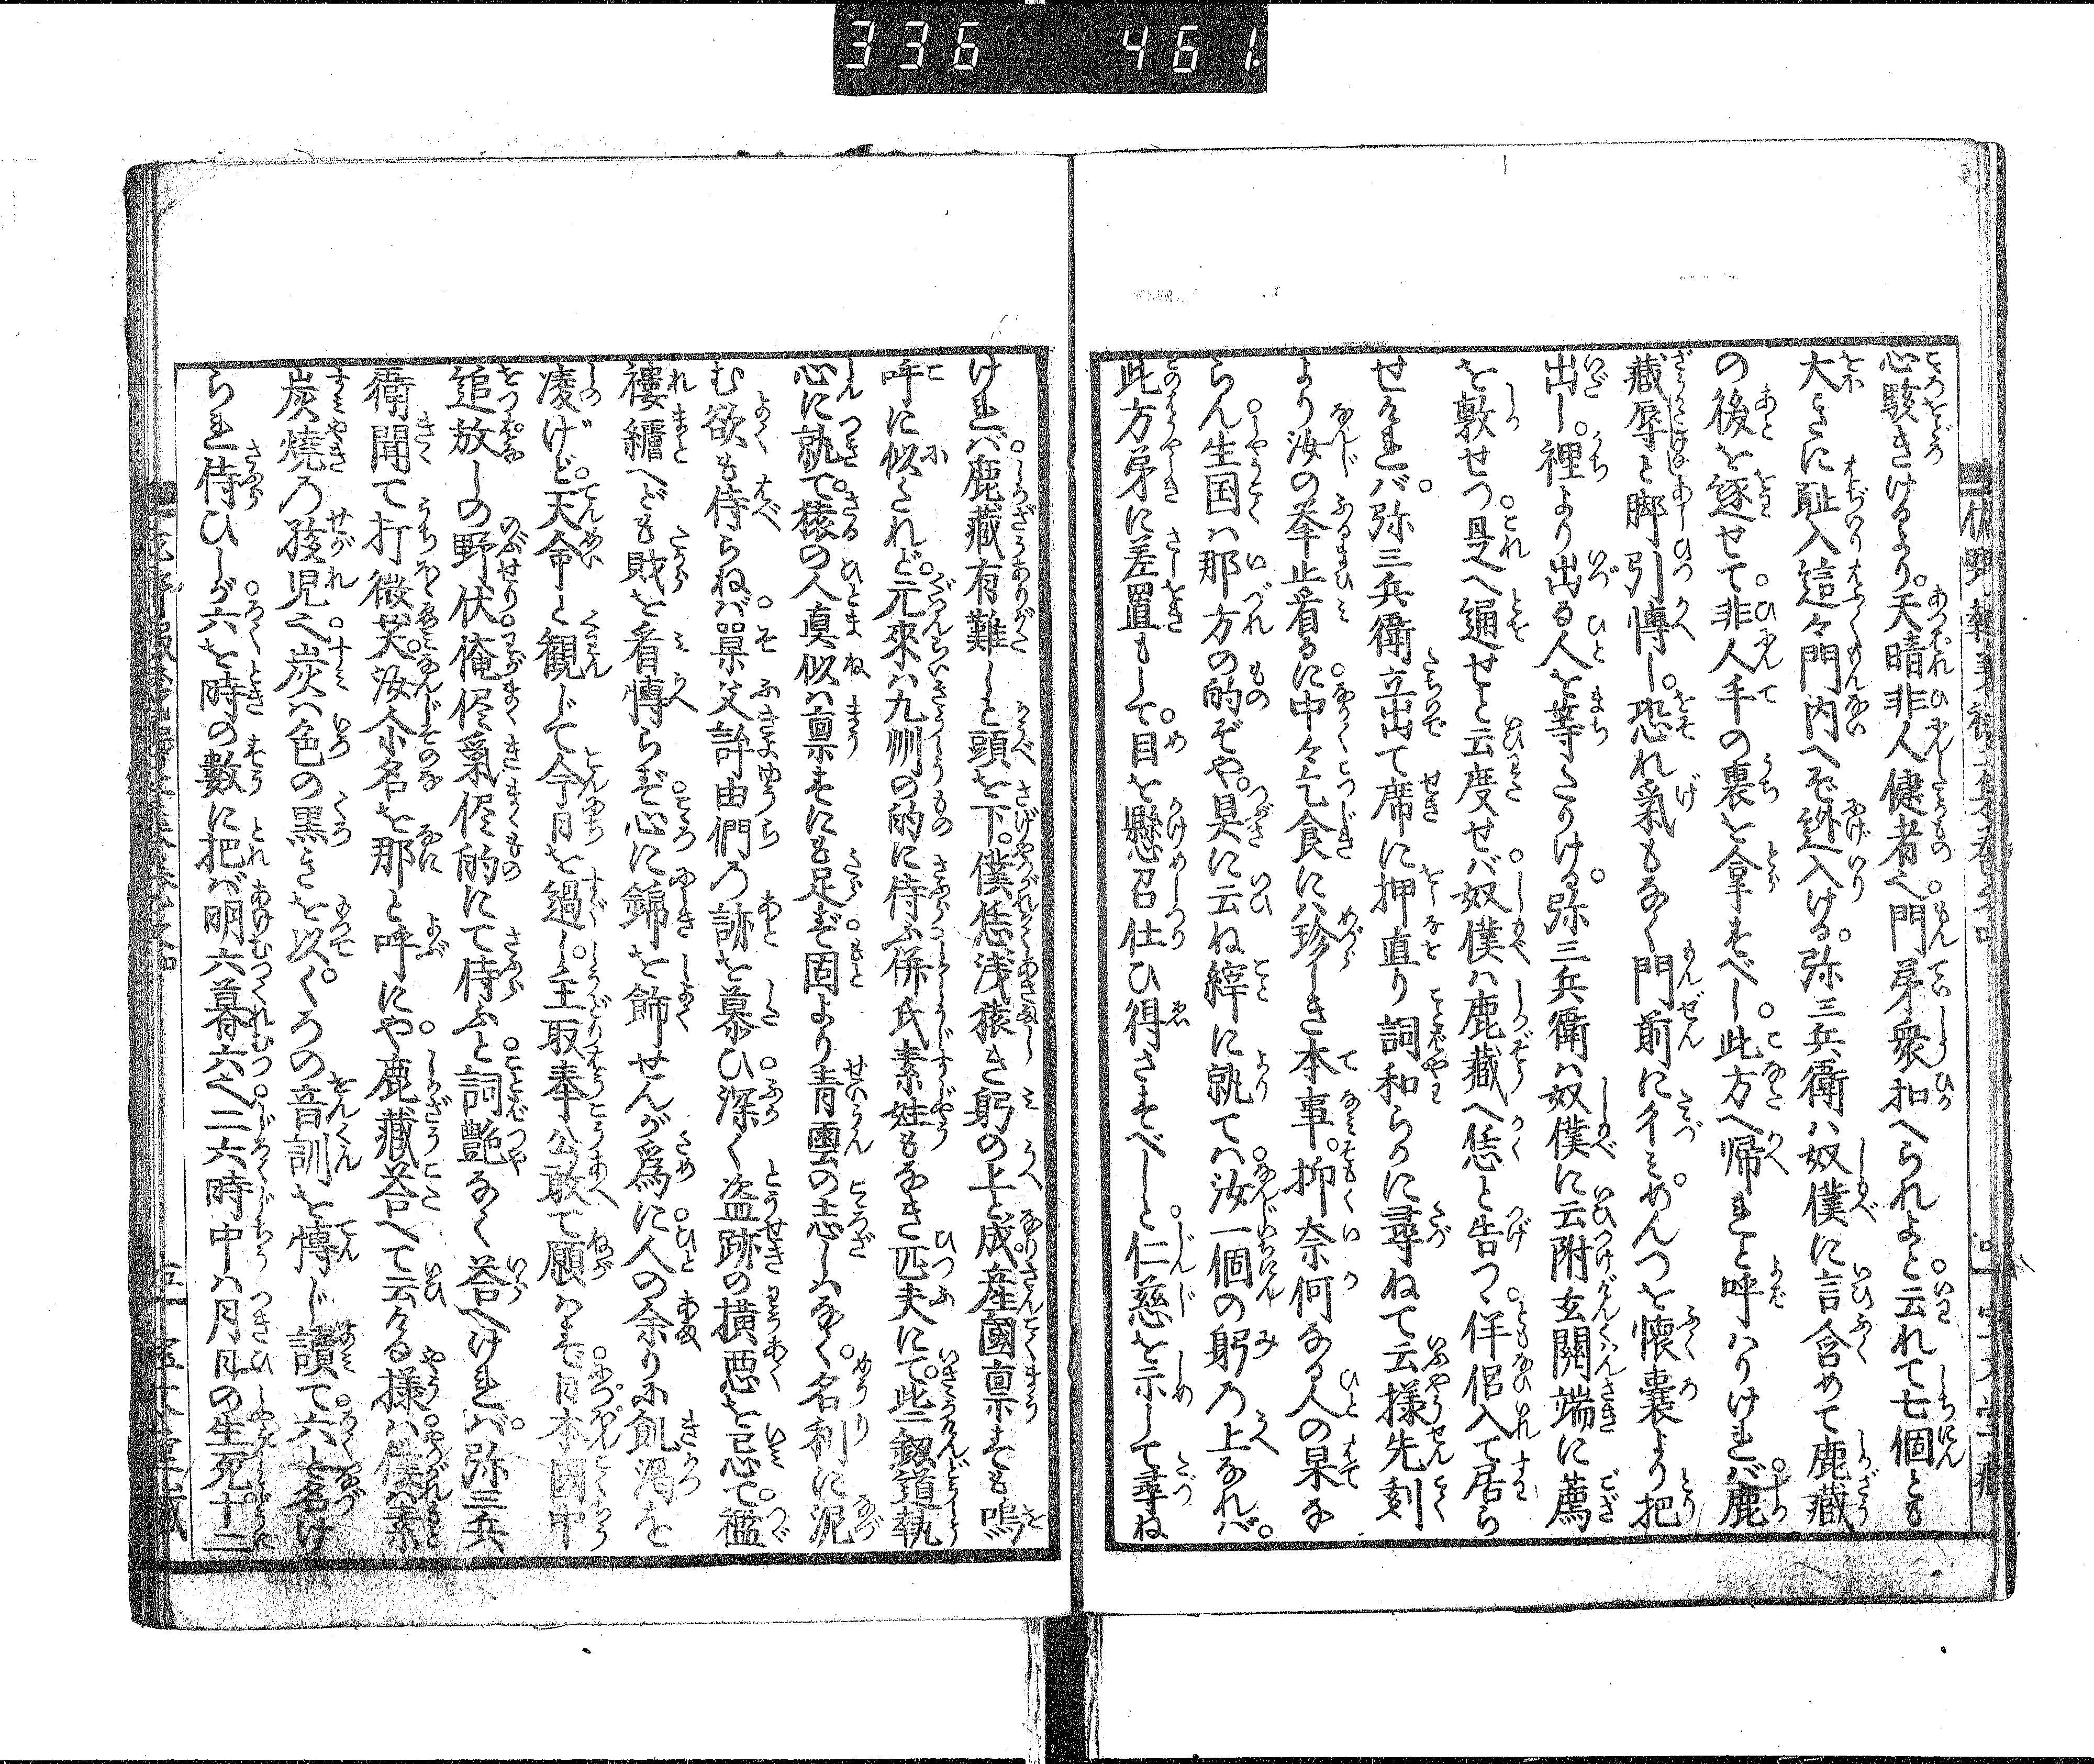 336 461
心駭きけるより。天晴非人健者之門弟衆扣へられよと云れて七個とも
大きに耻入這々門内へぞ迯入ける。弥三兵衛ハ奴僕に言含めて鹿藏
の後を逐せて非人手の裏を拿すべし。此方へ帰れと呼ハりけれバ鹿
藏辱と脚引慱し。恐れ氣もなく門前に彳みめんつを懐嚢より把
出し。裡より出る人を等たりける。弥三兵衛ハ奴僕に云附玄關端に薦
を敷せつ是へ通せと云度せバ奴僕ハ鹿藏へ恁と告つ佯侶入て居ら
せけれバ。弥三兵衛立出て席に押直り詞和らかに尋ねて云様先刻
より汝の挙止看るに中々乞食にハ珍しき本事。抑奈何なる人の果な
らん生国ハ那方の的ぞや。具に云ね縡に執てハ汝一個の躬の上なれバ。
此方弟に差置もして。目を懸召仕ひ得さすべしと仁慈を示して尋ね
けれバ鹿藏有難しと頭を下。僕恁浅猿き躬の上と成。産國稟すも嗚
呼に似たれど。元來ハ九州の的に侍ふ併氏素姓もなき匹夫にて。此刄劔道執
心に執て。猿の人真似ハ稟すにも足ず固より青雲の志しハなく。名利に泥
む欲も侍らねバ㬎父許由們の跡を慕ひ深く盗跡の横悪を忌て襤
褸纒へども賎を看慱らず心に錦を飾せんが爲に人の余りに飢渇を
凌げど。天命と観じて今月を過し。主取奉公敢て願ハず日本國中
追放しの野伏俺侭氣侭的にて侍ふと詞艶なく荅へけれバ。弥三兵
衛聞て打微笑。汝か名を那と呼にや鹿藏荅へて云ける様ハ僕ハ素
炭燒の孩児之炭ハ色の黒きを以。くろの音訓を慱じ讀て六と名け
られ侍ひしが六を時の數に把バ明六暮六之二六時中ハ月日の生死。十二